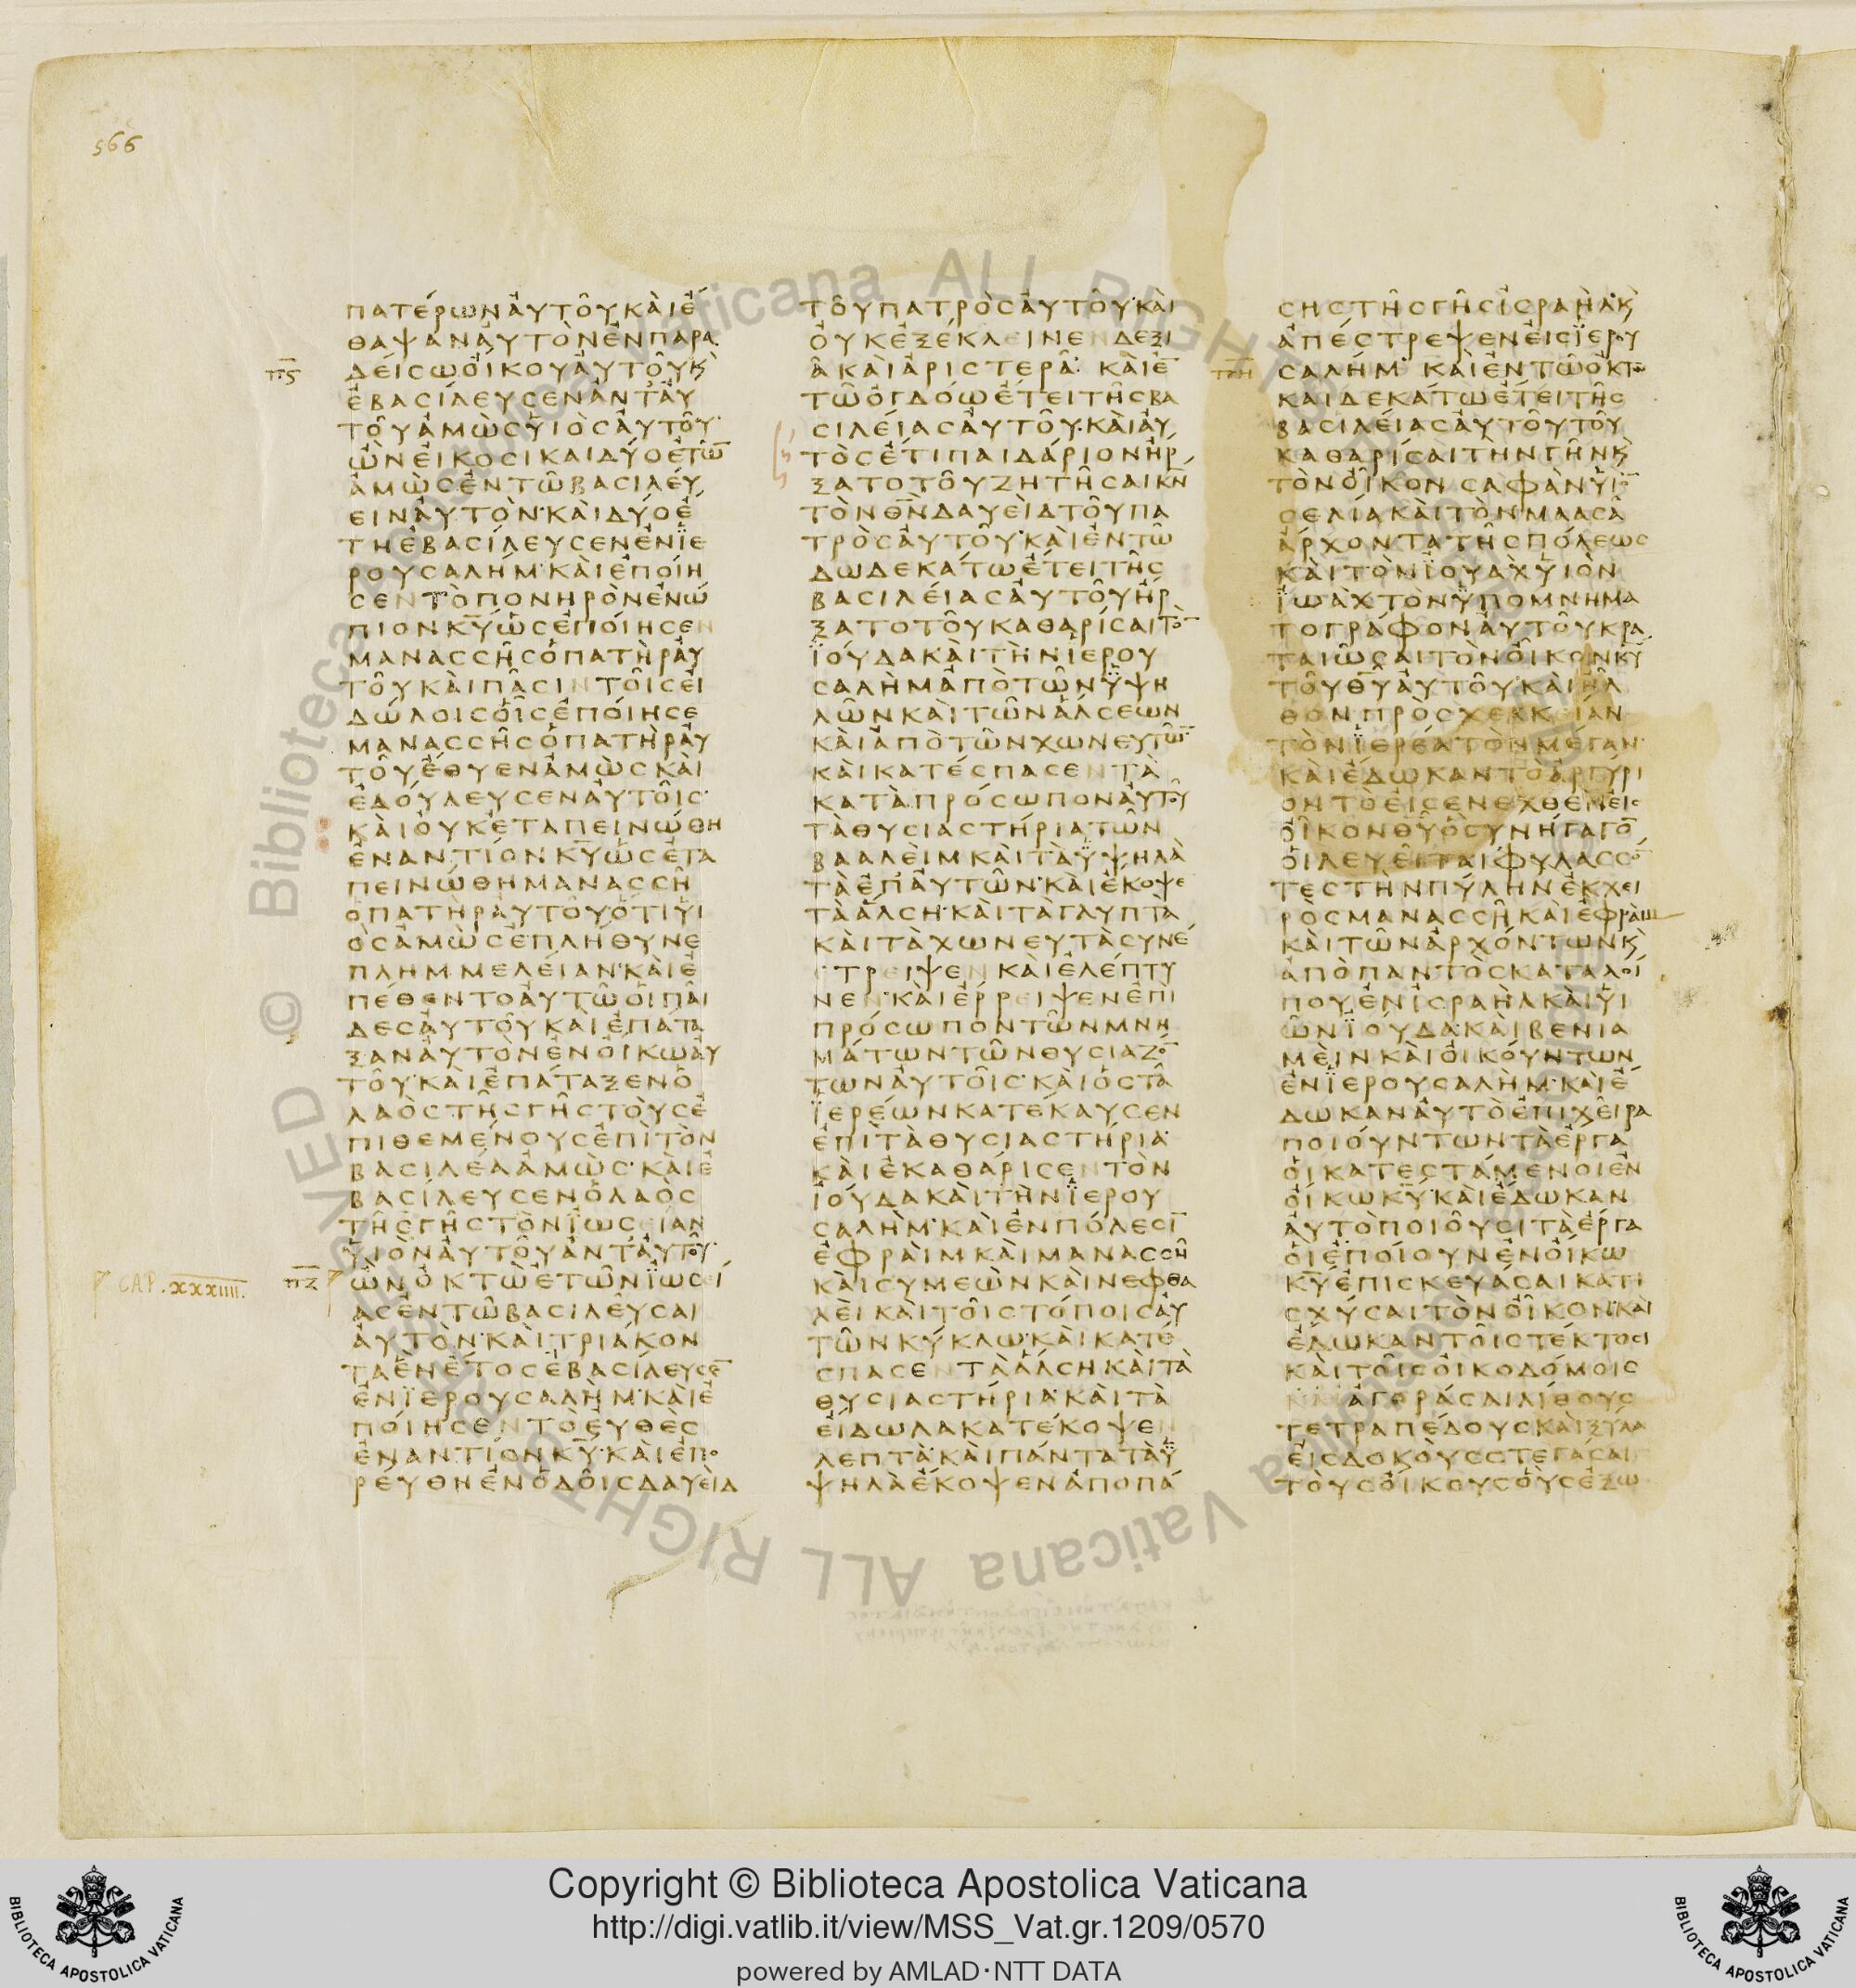 566
ΠΑΤΕΡΩΝΑΥΤΟΥΚΑΙΕ
ΘΑΨΑΝΑΥΤΟΝΕΝΠΑΡΑ
ΔΕΙΣΩΟΙΚΟΥΑΥΤΟΥΚ
ΕΒΑΣΙΛΕΥΣΕΝΑΝΤΑΥ
ΤΟΥΑΜΩΣΥΙΟΣΑΥΤΟΥ
ΩΝΕΙΚΟΣΙΚΑΙΔΥΟΕΤΩ̅
ΑΜΩΣΕΝΤΩΒΑΣΙΛΕΥ
ΕΙΝΑΥΤΟΝ·ΚΑΙΔΥΟΕ
ΤΗΕΒΑΣΙΛΕΥΣΕΝΕΝΪΕ
ΡΟΥΣΑΛΗΜ·ΚΑΙΕΠΟΙΗ
ΣΕΝΤΟΠΟΝΗΡΟΝΕΝΩ
ΠΙΟΝΚ̅Υ̅ΩΣΕΠΟΙΗΣΕΝ
ΜΑΝΑΣΣΗΣΟΠΑΤΗΡΑΥ
ΤΟΥΚΑΙΠΑΣΙΝΤΟΙΣΕΙ
ΔΩΛΟΙΣΟΙΣΕΠΟΙΗΣΕ
ΜΑΝΑΣΣΗΣΟΠΑΤΗΡΑΥ
ΤΟΥΕΘΥΕΝΑΜΩΣΚΑΙ
ΕΔΟΥΛΕΥΣΕΝΑΥΤΟΙΣ·
ΚΑΙΟΥΚΕΤΑΠΕΙΝΩΘΗ
ΕΝΑΝΤΙΟΝΚ̅Υ̅ΩΣΕΤΑ
ΠΕΙΝΩΘΗΜΑΝΑΣΣΗ
ΟΠΑΤΗΡΑΥΤΟΥΟΤΙΥΙ
ΟΣΑΜΩΣΕΠΛΗΘΥΝΕ
ΠΛΗΜΜΕΛΕΙΑΝ·ΚΑΙΕ
ΠΕΘΕΝΤΟΑΥΤΩΟΙΠΑΙ
ΔΕΣΑΥΤΟΥΚΑΙΕΠΑΤΑ
ΞΑΝΑΥΤΟΝΕΝΟΙΚΩΑΥ
ΤΟΥ·ΚΑΙΕΠΑΤΑΞΕΝΟ
ΛΑΟΣΤΗΣΓΗΣΤΟΥΣΕ
ΠΙΘΕΜΕΝΟΥΣΕΠΙΤΟΝ
ΒΑΣΙΛΕΑΑΜΩΣ·ΚΑΙΕ
ΒΑΣΙΛΕΥΣΕΝΟΛΑΟΣ
ΤΗΣΓΗΣΤΟΝΪΩΣΕΙΑΝ
ΥΙΟΝΑΥΤΟΥΑΝΤΑΥΤΟΥ·
CAP. XXXIIII.
ΩΝΟΚΤΩΕΤΩΝΪΩΣΕΙ
ΑΣΕΝΤΩΒΑΣΙΛΕΥΣΑΙ
ΑΥΤΟΝ·ΚΑΙΤΡΙΑΚΟΝ
ΤΑΕΝΕΤΟΣΕΒΑΣΙΛΕΥΣΕ̅
ΕΝΪΕΡΟΥΣΑΛΗΜ·ΚΑΙΕ
ΠΟΙΗΣΕΝΤΟΕΥΘΕΣ
ΕΝΑΝΤΙΟΝΚ̅Υ̅·ΚΑΙΕΠΟ
ΡΕΥΘΗΕΝΟΔΟΙΣΔΑΥΕΙΔ
ΤΟΥΠΑΤΡΟΣΑΥΤΟΥ·ΚΑΙ
ΟΥΚΕΞΕΚΛΕΙΝΕΝΔΕΞΙ
ΑΚΑΙΑΡΙΣΤΕΡΑ· ΚΑΙΕ̅
ΤΩΟΓΔΟΩΕΤΕΙΤΗΣΒΑ
ΣΙΛΕΙΑΣΑΥΤΟΥ·ΚΑΙΑΥ
ΤΟΣΕΤΙΠΑΙΔΑΡΙΟΝΗΡ
ΞΑΤΟΤΟΥΖΗΤΗΣΑΙΚ̅Ν̅
ΤΟΝΘ̅Ν̅ΔΑΥΕΙΔΤΟΥΠΑ
ΤΡΟΣΑΥΤΟΥ·ΚΑΙΕΝΤΩ
ΔΩΔΕΚΑΤΩΕΤΕΙΤΗΣ
ΒΑΣΙΛΕΙΑΣΑΥΤΟΥΗΡ
ΞΑΤΟΤΟΥΚΑΘΑΡΙΣΑΙΤΟ̅
ΪΟΥΔΑΚΑΙΤΗΝΪΕΡΟΥ
ΣΑΛΗΜΑΠΟΤΩΝΫΨΗ
ΛΩΝΚΑΙΤΩΝΑΛΣΕΩΝ
ΚΑΙΑΠΟΤΩΝΧΩΝΕΥΤΩ̅
ΚΑΙΚΑΤΕΣΠΑΣΕΝΤΑ
ΚΑΤΑΠΡΟΣΩΠΟΝΑΥΤΟΥ
ΤΑΘΥΣΙΑΣΤΗΡΙΑΤΩΝ
ΒΑΑΛΕΙΜΚΑΙΤΑΫΨΗΛΑ
ΤΑΕΠΑΥΤΩΝ·ΚΑΙΕΚΟΨΕ
ΤΑΑΛΣΗ·ΚΑΙΤΑΓΛΥΠΤΑ
ΚΑΙΤΑΧΩΝΕΥΤΑΣΥΝΕ
ΤΡΕΙΨΕΝΚΑΙΕΛΕΠΤΥ
ΝΕΝ·ΚΑΙΕΡΡΕΙΨΕΝΕΠΙ
ΠΡΟΣΩΠΟΝΤΩΝΜΝΗ
ΜΑΤΩΝΤΩΝΘΥΣΙΑΖΟ̅
ΤΩΝΑΥΤΟΙΣ·ΚΑΙΟΣΤΑ
ΪΕΡΕΩΝΚΑΤΕΚΑΥΣΕΝ
ΕΠΙΤΑΘΥΣΙΑΣΤΗΡΙΑ·
ΚΑΙΕΚΑΘΑΡΙΣΕΝΤΟΝ
ΪΟΥΔΑΚΑΙΤΗΝΪΕΡΟΥ
ΣΑΛΗΜ·ΚΑΙΕΝΠΟΛΕΣΙ̅
ΕΦΡΑΙΜΚΑΙΜΑΝΑΣΣΗ
ΚΑΙΣΥΜΕΩΝΚΑΙΝΕΦΘΑ
ΛΕΙΚΑΙΤΟΙΣΤΟΠΟΙΣΑΥ
ΤΩΝΚΥΚΛΩ·ΚΑΙΚΑΤΕ
ΣΠΑΣΕΝΤΑΑΛΣΗ·ΚΑΙΤΑ
ΘΥΣΙΑΣΤΗΡΙΑ·ΚΑΙΤΑ
ΕΙΔΩΛΑΚΑΤΕΚΟΨΕΝ
ΛΕΠΤΑ·ΚΑΙΠΑΝΤΑΤΑΫ
ΨΗΛΑΕΚΟΨΕΝΑΠΟΠΑ
ΣΗΣΤΗΣΓΗΣΙΣΡΑΗΛ·Κ
ΑΠΕΣΤΡΕΨΕΝΕΙΣΪΕΡΟΥ
ΣΑΛΗΜ· ΚΑΙΕΝΤΩΟΚΤΩ
ΚΑΙΔΕΚΑΤΩΕΤΕΙΤΗΣ
ΒΑΣΙΛΕΙΑΣΑΥΤΟΥΤΟΥ
ΚΑΘΑΡΙΣΑΙΤΗΝΓΗΝΚ
ΤΟΝΟΙΚΟΝ ΣΑΦΑΝΥΙΟ̅
ΣΕΛΙΑΚΑΙΤΟΝΜΑΑΣΑ
ΑΡΧΟΝΤΑΤΗΣΠΟΛΕΩΣ
ΚΑΙΤΟΝΪΟΥΑΧΥΙΟΝ
ΪΩΑΧΤΟΝΫΠΟΜΝΗΜΑ
ΤΟΓΡΑΦΟΝΑΥΤΟΥΚΡΑ
ΤΑΙΩΣΑΙΤΟΝΟΙΚΟΝΚ̅Υ̅
ΤΟΥΘ̅Υ̅ΑΥΤΟΥ·ΚΑΙΗΛ
ΘΟΝΠΡΟΣΧΕΛΚΕΙΑΝ
ΤΟΝΪΕΡΕΑΤΟΝΜΕΓΑΝ·
ΚΑΙΕΔΩΚΑΝΤΟΑΡΓΥΡΙ
ΟΝΤΟΕΙΣΕΝΕΧΘΕΝΕΙΣ
ΟΙΚΟΝΘ̅Υ̅ΟΣΥΝΗΓΑΓΟ̅
ΟΙΛΕΥΕΙΤΑΙΦΥΛΑΣΣΟ̅
ΤΕΣΤΗΝΠΥΛΗΝΕΚΧΕΙ
ΡΟΣΜΑΝΑΣΣΗΚΑΙΕΦΡΑΙΜ
ΚΑΙΤΩΝΑΡΧΟΝΤΩΝΚ
ΑΠΟΠΑΝΤΟΣΚΑΤΑΛΟΙ
ΠΟΥΕΝΙΣΡΑΗΛΚΑΙΥΙ
ΩΝΪΟΥΔΑ·ΚΑΙΒΕΝΙΑ
ΜΕΙΝΚΑΙΟΙΚΟΥΝΤΩΝ
ΕΝΪΕΡΟΥΣΑΛΗΜ·ΚΑΙΕ
ΔΩΚΑΝΑΥΤΟΕΠΙΧΕΙΡΑ
ΠΟΙΟΥΝΤΩΝΤΑΕΡΓΑ
ΟΙΚΑΤΕΣΤΑΜΕΝΟΙΕΝ
ΟΙΚΩΚ̅Υ̅·ΚΑΙΕΔΩΚΑΝ
ΑΥΤΟΠΟΙΟΥΣΙΤΑΕΡΓΑ
ΟΙΕΠΟΙΟΥΝΕΝΟΙΚΩ
Κ̅Υ̅ΕΠΙΣΚΕΥΑΣΑΙΚΑΤΙ
ΣΧΥΣΑΙΤΟΝΟΙΚΟΝ·ΚΑΙ
ΕΔΩΚΑΝΤΟΙΣΤΕΚΤΟΣΙ
ΚΑΙΤΟΙΣΟΙΚΟΔΟΜΟΙΣ
ΑΓΟΡΑΣΑΙΛΙΘΟΥΣ
ΤΕΤΡΑΠΕΔΟΥΣΚΑΙΞΥΛΑ
ΕΙΣΔΟΚΟΥΣΣΤΕΓΑΣΑΙ
ΤΟΥΣΟΙΚΟΥΣΟΥΣΕΞΩ
Copyright © Biblioteca Apostolica Vaticana
http://digi.vatlib.it/view/MSS_Vat.gr.1209/0570
powered by AMLAD·NTT DATA
BIBLIOTECA APOSTOLICA VATICANA
BIBLIOTECA APOSTOLICA VATICANA